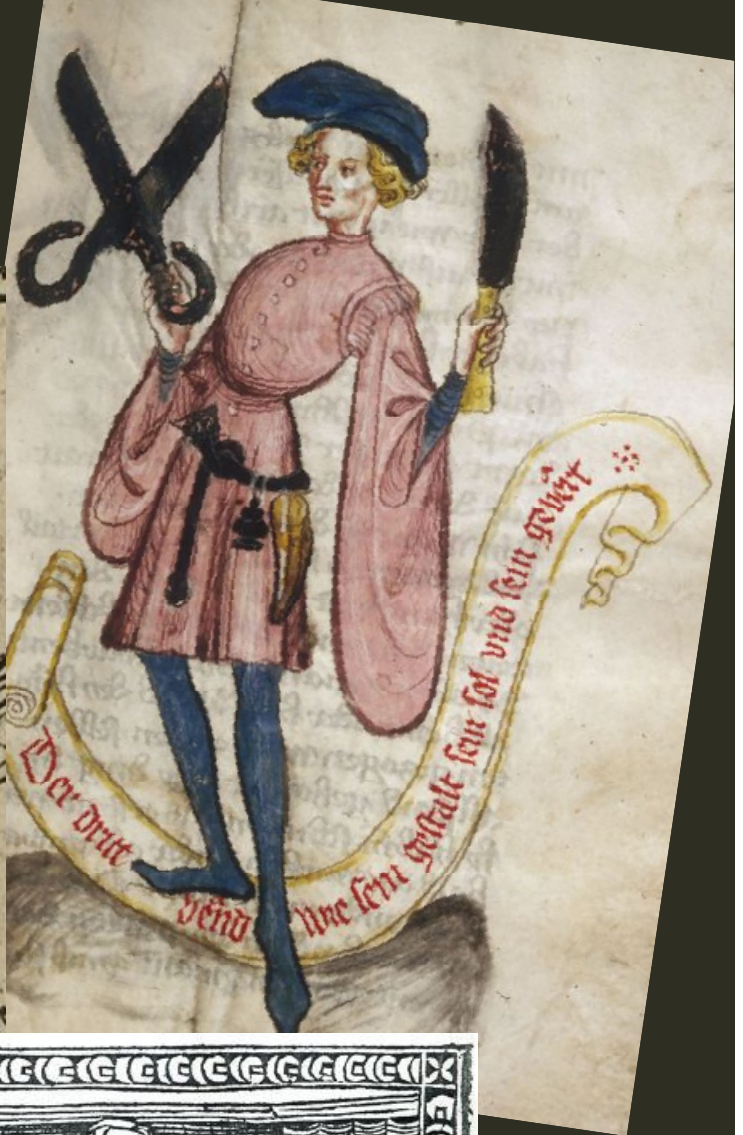 Der dritt vênd wye sein gestalt sein sol vnd sein gebêrt